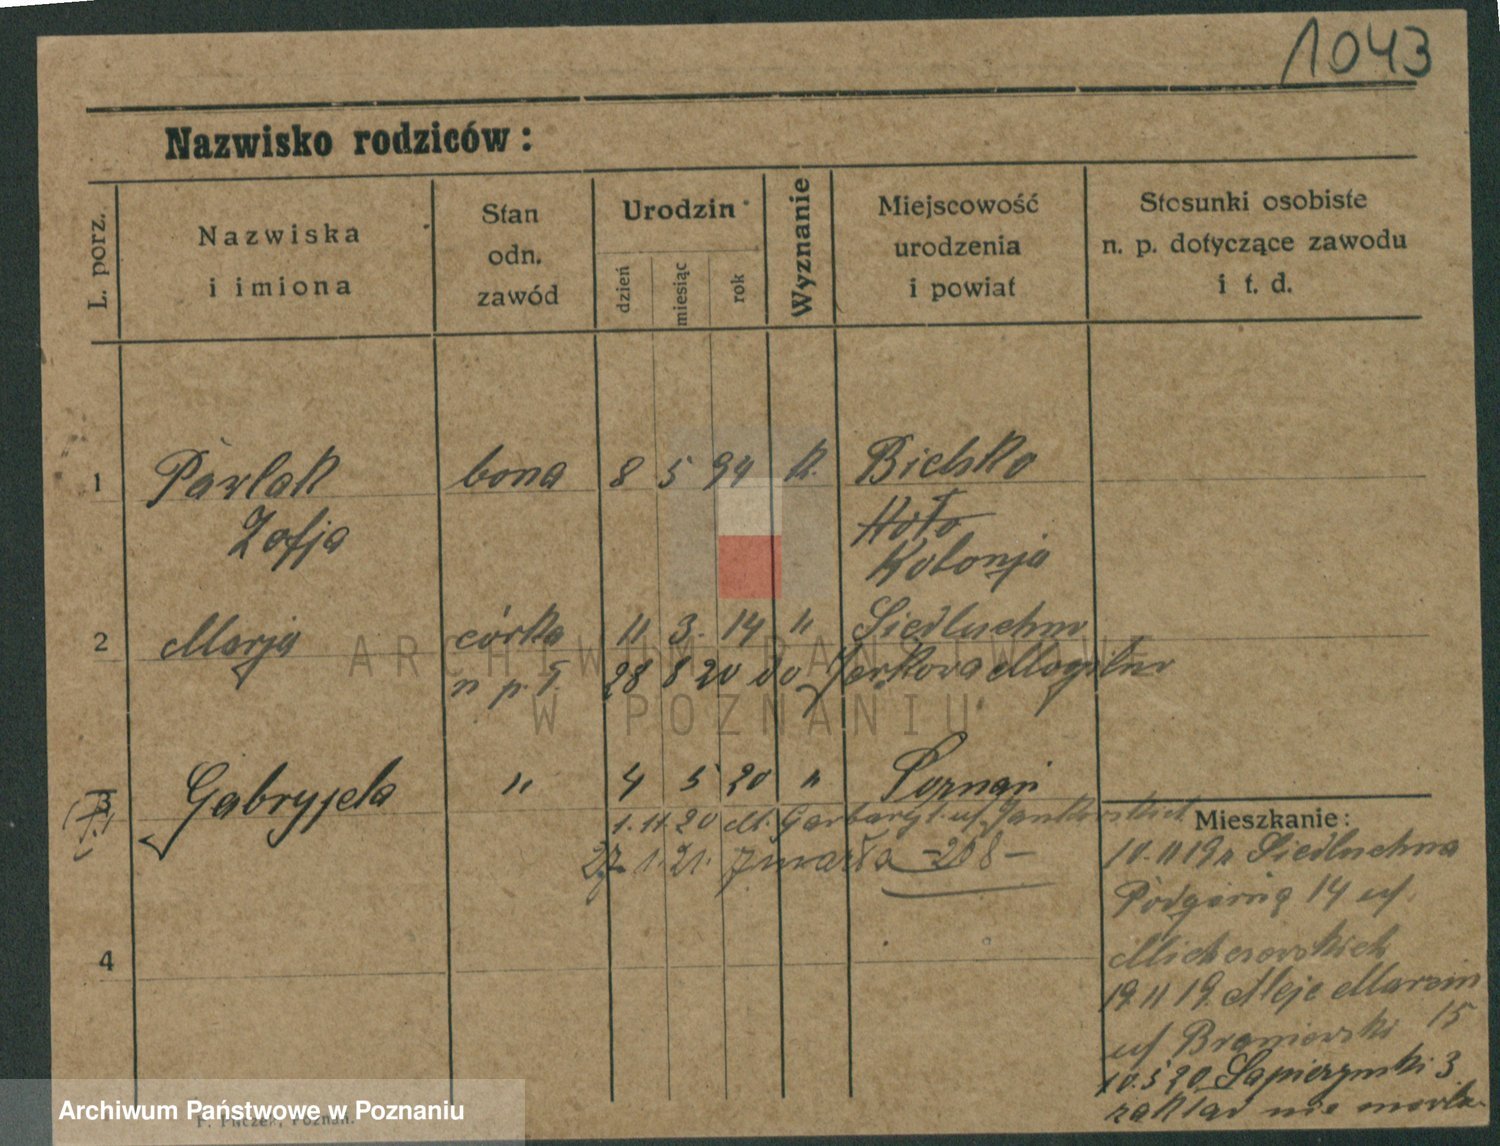 1043
Nazwisko rodziców:
L. porz.
Nazwiska
i imiona
Stan
odn.
zawód
Urodzin
dzień
miesiąc
rok
Wyznanie
Miejscowość
urodzenia
i powiat
Stosunki osobiste
n. p. dotyczące zawodu
i t. d.
1 Pawlak bona 8 5 94 k. Bielsko
Zofja Koło
Kolonja
2 Marja córka 11 3. 14 " Siedluchno
28 8 20 do Mogilno
3 Gabryjela " 4 5 20 " Poznań
1.11.20
27. 1. 21. zmarła - 208 -
4
Mieszkanie:
10.11 19 Siedluchna
Podgórna 14 u/
19.11 19. Aleje Marcin
15
u/ Braniewski
10.5 20 3
zakład
ARCHIWUM PAŃSTWOWE
W POZNANIU
Archiwum Państwowe w Poznaniu
F. Puczek, Poznań.